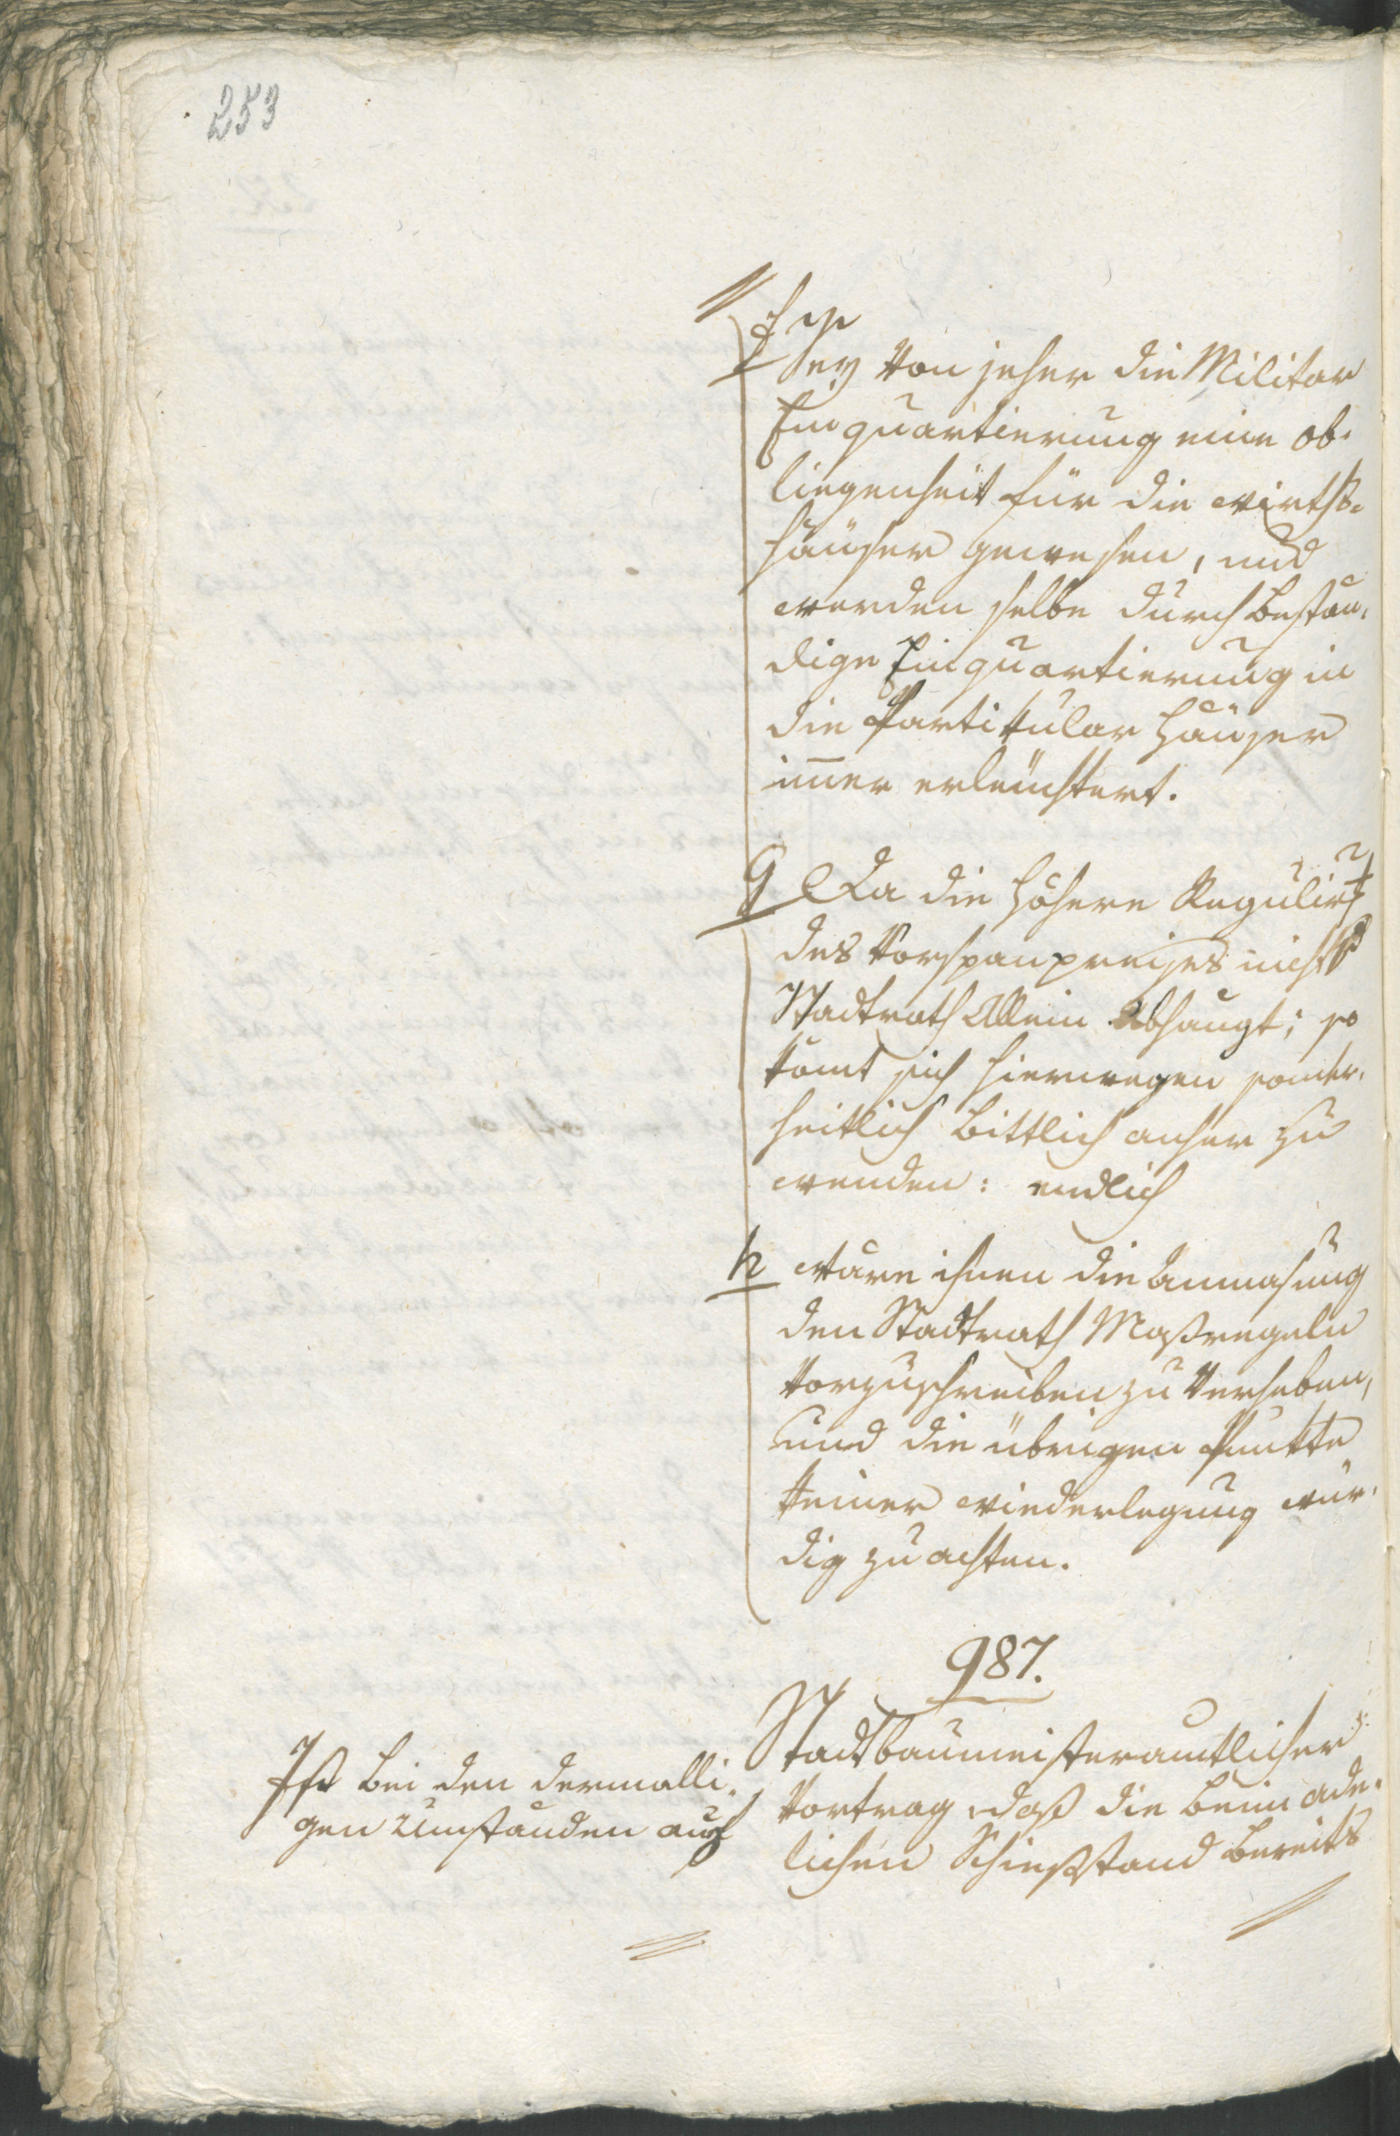 253
f
Sey von jeher die Militar
Einquartierung eine ob-
liegenheit für die wirths-
häuser gewesen, und
werden selbe durch bestän-
dige Einquartierung in
die Partikular Häuser
im̅er erleichtert.
g Da die höhere Regulirg
des Vorspanpreises nicht
Stadtrath Allein Abhangt; so
kom̅t sich hierwegen sonder-
heitlich bittlich anher zu
wenden: endlich
h wäre ihnen die Anmasung
den Stadtrath Maßregeln
vorzuschreiben zu verheben,
und die übrigen Punkte
keiner wiederlegung wür-
dig zu achten.
987.
Stadtbaumeisteramtlicher
Vortrag, daß die beim ade-
lichen Schießstand bereits
Ist bei den dermalli-
gen Umständen auch